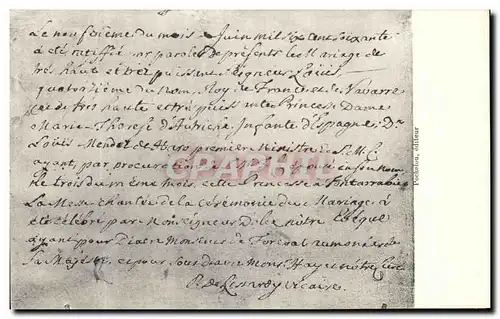 Le neufvieme du mois Juin mil six cent soixante
a été ratiffié par paroles de présents le Mariage de
très haute et très puissant Seigneur Louis
quatorzieme du nom, Roy de France et de Navarre
de très haute et très puissante Princesse Dame
Marie Therese d'Autriche, Infante d'Espagne; Dn
Louis Mendez de Haro premier Ministre de S. M. C.
ayant, par procure
le trois du meme mois, cette Princesse a Fontarrabie
La Messe chantée de la ceremonie du Mariage a
été celebré par Monseigneur De notre Evêque
ayant pour Diacre Monsieur de Forcoal aumonier de
Sa Majesté, et pour sous diacre Mons. Haye nôtre
P. de Lissardy vicaire.
Pocholou, éditeur